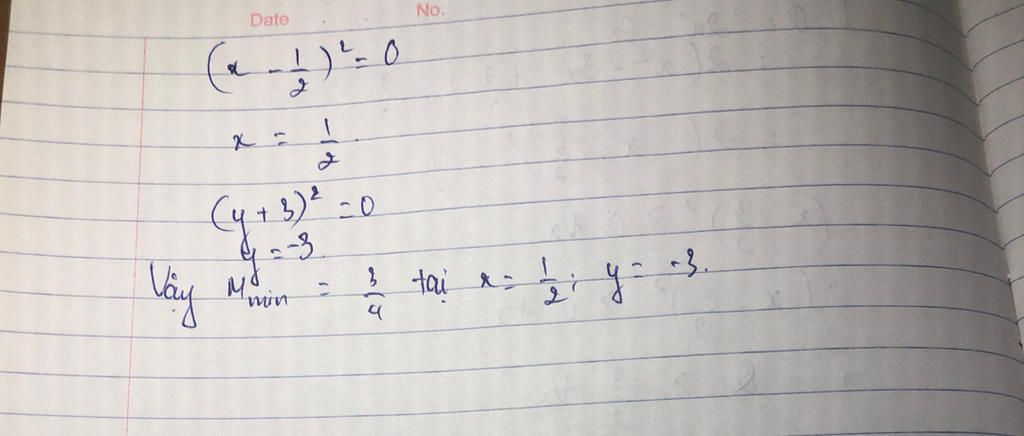 Date . . No.
(x - 1/2)² = 0
x = 1/2
(y + 3)² = 0
y = -3.
Vậy Mmin = 3/4 tại x = 1/2; y = -3.